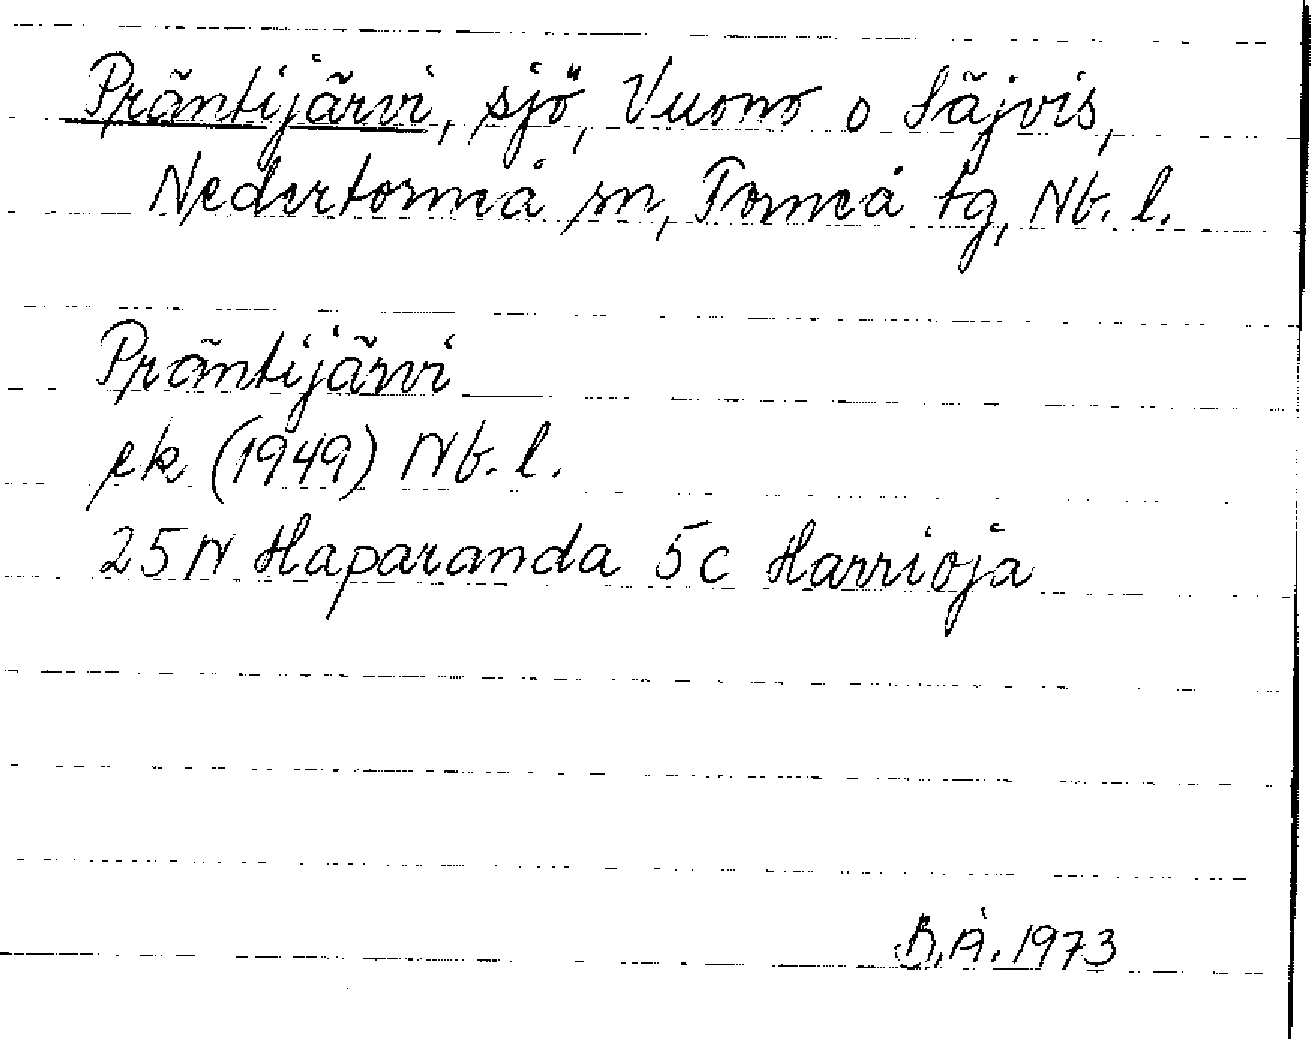 Präntijärvi, sjö, Vuono o Säjvis,
Nedertorneå sn, Torneå tg, Nb. l.
Präntijärvi
ek (1949) Nb. l.
25N Haparanda 5c Harrioja
B.Å. 1973